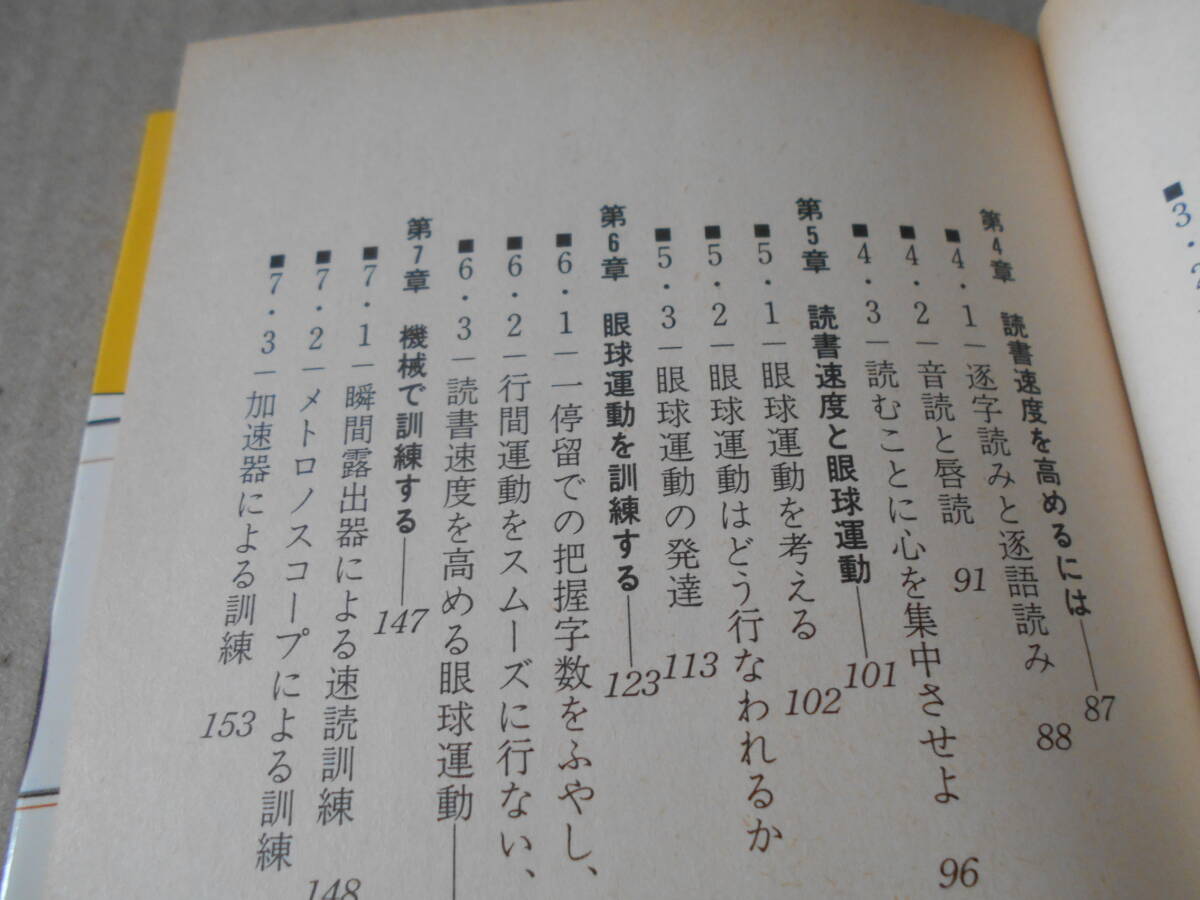 ■3・2
第4章 読書速度を高めるには——87
■4・1—逐字読みと逐語読み 88
■4・2—音読と唇読 91
■4・3—読むことに心を集中させよ 96
第5章 読書速度と眼球運動——101
■5・1—眼球運動を考える 102
■5・2—眼球運動はどう行なわれるか
■5・3—眼球運動の発達 113
第6章 眼球運動を訓練する——123
■6・1—一停留での把握字数をふやし、
■6・2—行間運動をスムーズに行ない、
■6・3—読書速度を高める眼球運動——
第7章 機械で訓練する——147
■7・1—瞬間露出器による速読訓練 148
■7・2—メトロノスコープによる訓練
■7・3—加速器による訓練 153